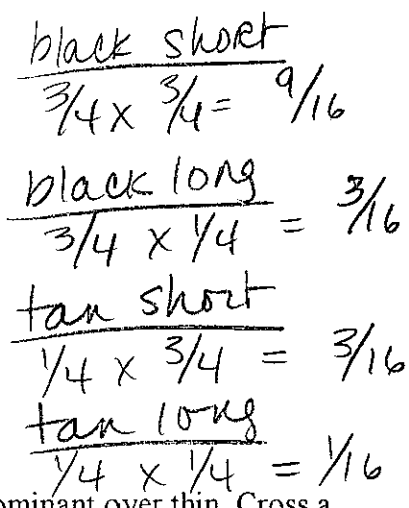 black short
3/4 x 3/4 = 9/16
black long
3/4 x 1/4 = 3/16
tan short
1/4 x 3/4 = 3/16
tan long
1/4 x 1/4 = 1/16
ominant over thin. Cross a